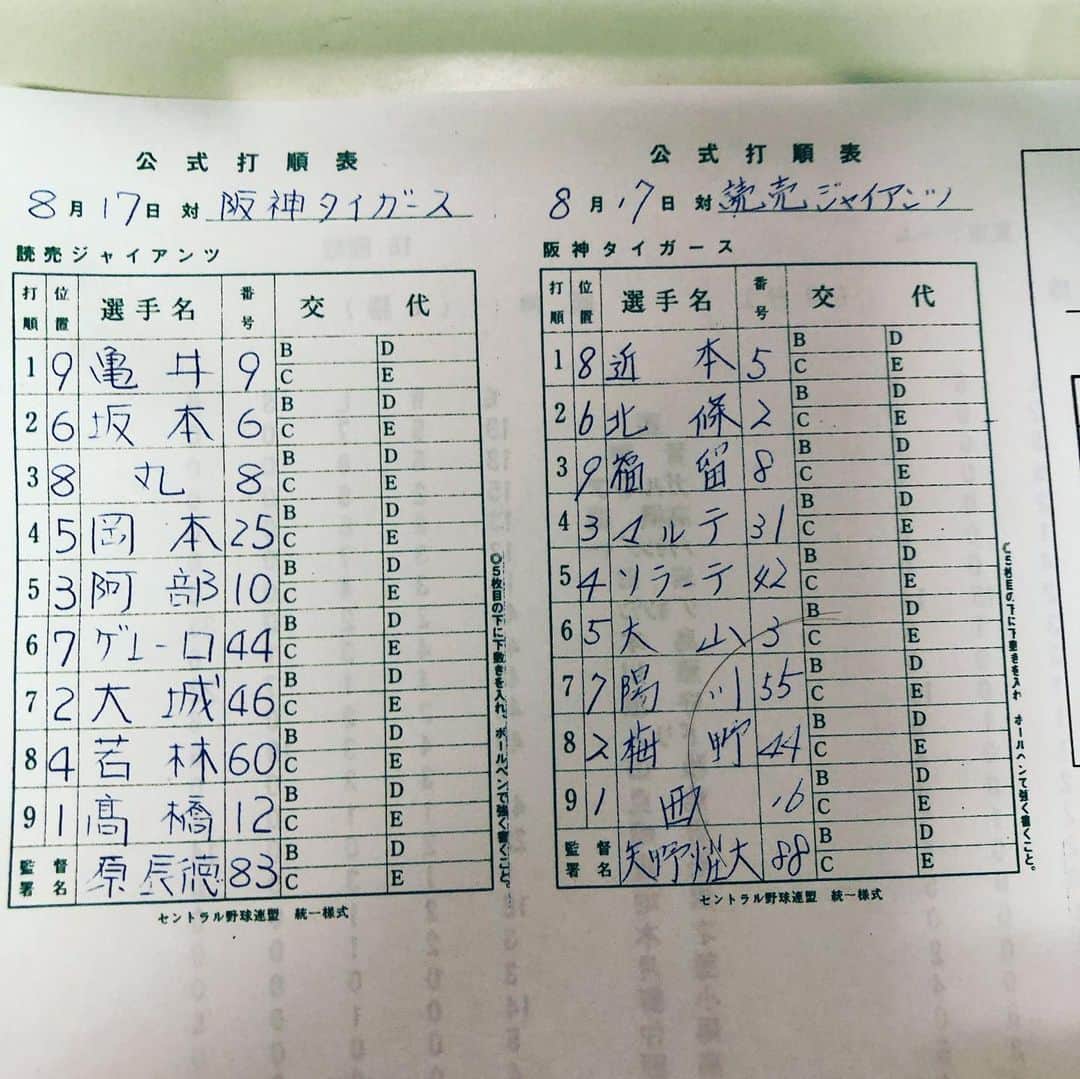 公式打順表
8月17日 対 阪神タイガース
読売ジャイアンツ
打順 位置 選手名 番号 交代
1 9 亀井 9 B C D E
2 6 坂本 6 B C D E
3 8 丸 8 B C D E
4 5 岡本 25 B C D E
5 3 阿部 10 B C D E
6 7 ゲレーロ 44 B C D E
7 2 大城 46 B C D E
8 4 若林 60 B C D E
9 1 髙橋 12 B C D E
監督署名 原辰徳 83 B C D E
セントラル野球連盟 統一様式
◎5枚目の下に下敷きを入れ、ボールペンで強く書くこと。
公式打順表
8月17日 対 読売ジャイアンツ
阪神タイガース
打順 位置 選手名 番号 交代
1 8 近本 5 B C D E
2 6 北條 2 B C D E
3 9 福留 8 B C D E
4 3 マルテ 31 B C D E
5 4 ソラーテ 42 B C D E
6 5 大山 3 B C D E
7 7 陽川 55 B C D E
8 2 梅野 44 B C D E
9 1 西 16 B C D E
監督署名 矢野燿大 88 B C D E
セントラル野球連盟 統一様式
◎5枚目の下に下敷きを入れ ボールペンで強く書くこと。